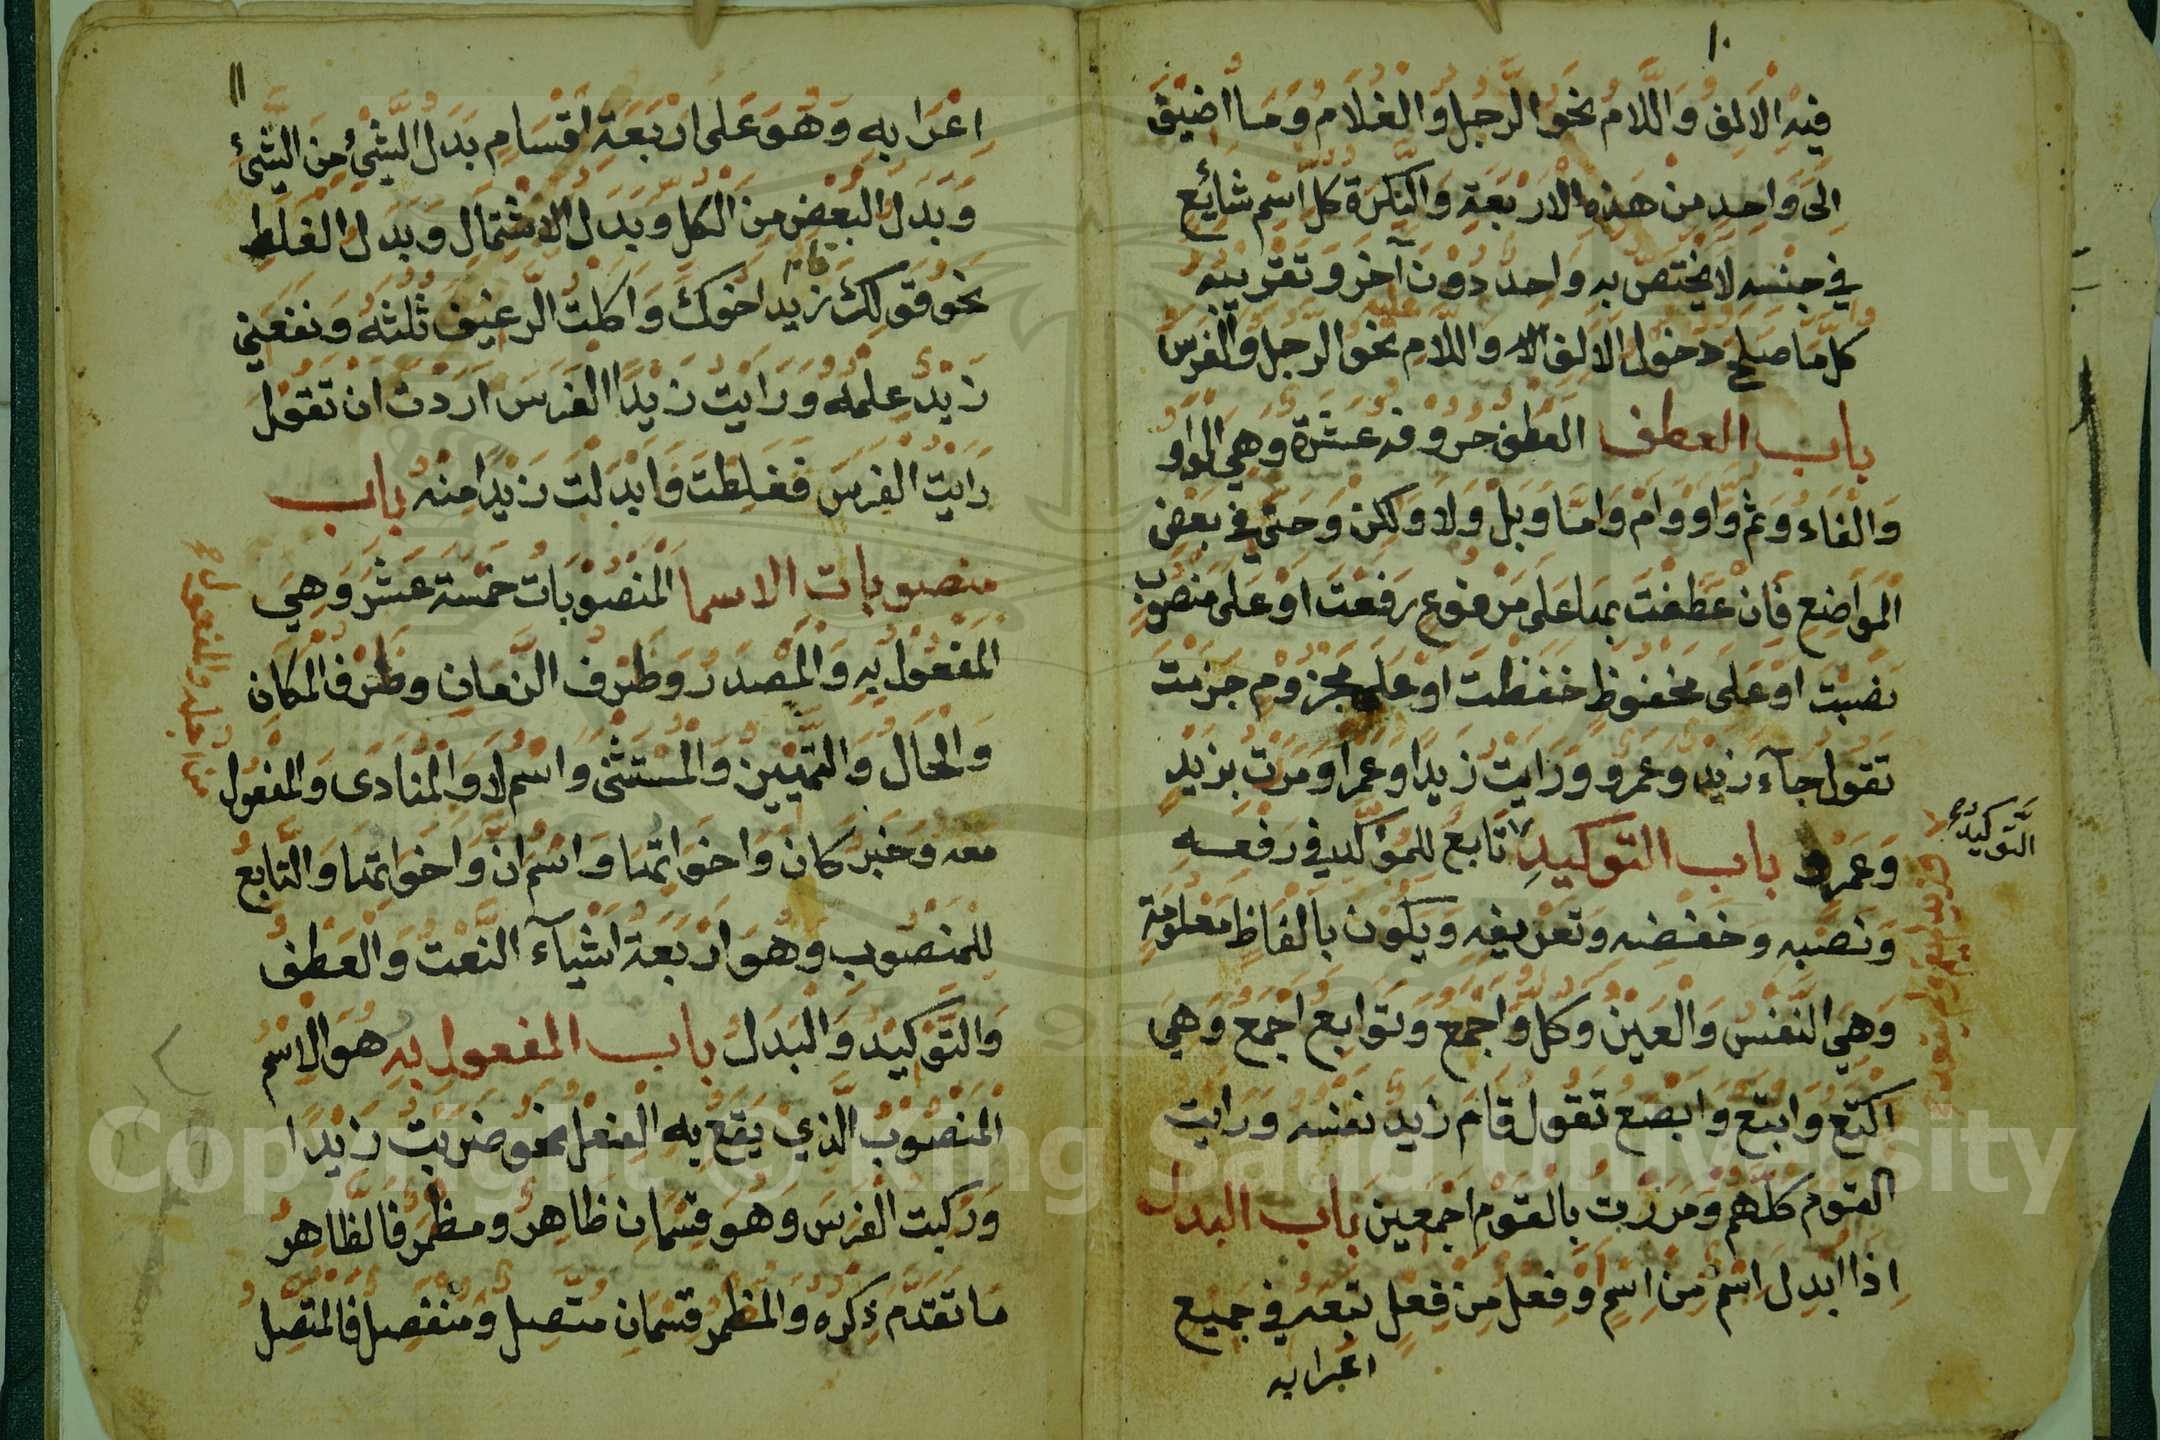 ١٠
فيه الالف واللام نحو الرجل والغلام وما اضيف
الى واحد من هذه الاربعة والنكرة كل اسم شايع
في جنسه لا يختص به واحد دون آخر وتقريبه
كل ما صلح دخول الالف واللام عليه نحو الرجل والفرس
باب العطف العطف حروفه عشرة وهي الواو
والفاء وثم واو وام واما وبل ولا ولكن وحتى في بعض
المواضع فان عطفت بها على مرفوع رفعت او على منصوب
نصبت او على مخفوظ خفظت او على مجزوم جزمت
تقول جآء زيد وعمرو ورايت زيدا وعمرا ومررت بزيد
وعمرو باب التوكيد تابع للمؤكد في رفعه
التوكيد
ونصبه وخفضه وتعريفه ويكون بالفاظ معلومة
وهي النفس والعين وكل واجمع وتوابع اجمع وهي
اكتع وابتع وابصع تقول قام زيد نفسه ورايت
القوم كلهم ومررت بالقوم اجمعين باب البدل
اذا ابدل اسم من اسم وفعل من فعل تبعه في جميع
اعرابه
١١
اعرابه وهو على اربعة اقسام بدل الشئ من الشئ
وبدل البعض من الكل وبدل الاشتمال وبدل الغلط
نحو قولك قام زيد اخوك واكلت الرغيف ثلثه ونفعني
زيد علمه ورايت زيدا الفرس اردت ان تقول
رايت الفرس فغلطت وابدلت زيدا منه باب
منصوبات الاسما المنصوبات خمسة عشر وهي
المفعول به والمصدر وظرف الزمان وظرف المكان
والحال والتمييز والمستثنى واسم لا والمنادى والمفعول
من اجله والمفعول
معه وخبر كان واخواتها واسم ان واخواتها والتابع
للمنصوب وهو اربعة اشيآء النعت والعطف
والتوكيد والبدل باب المفعول به هو الاسم
المنصوب الذي يقع به الفعل نحو ضربت زيدا
وركبت الفرس وهو قسمان ظاهر ومظمر فالظاهر
ما تقدم ذكره والمظمر قسمان متصل ومنفصل فالمتصل
Copyright © King Saud University